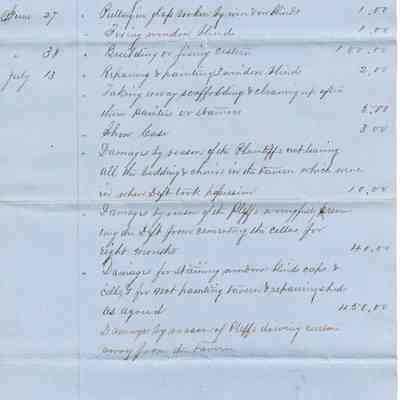 June 27 " Putting in glass broken by wind on blinds 1.00
" Fixing window blind 1.00
" 30 " Building or fixing cistern 100.00
July 13 " Repairing & painting 1 window blind 2.00
" Taking away scaffolding & cleaning up after
these painters or stainers 5.00
" Show Case 3.00
" Damages by reason of the Plaintiffs not leaving
all the bedding & chairs in the tavern which were
in when Deft took possession 10.00
" Damages by reason of the Plffs wrongfully
ing the Deft from cementing the cellar for
eight months 40.00
" Damages for staining window blind caps &
& for not painting tavern & repairing shed
as agreed 450.00
Damages by reason of Plffs driving custom
away from the tavern